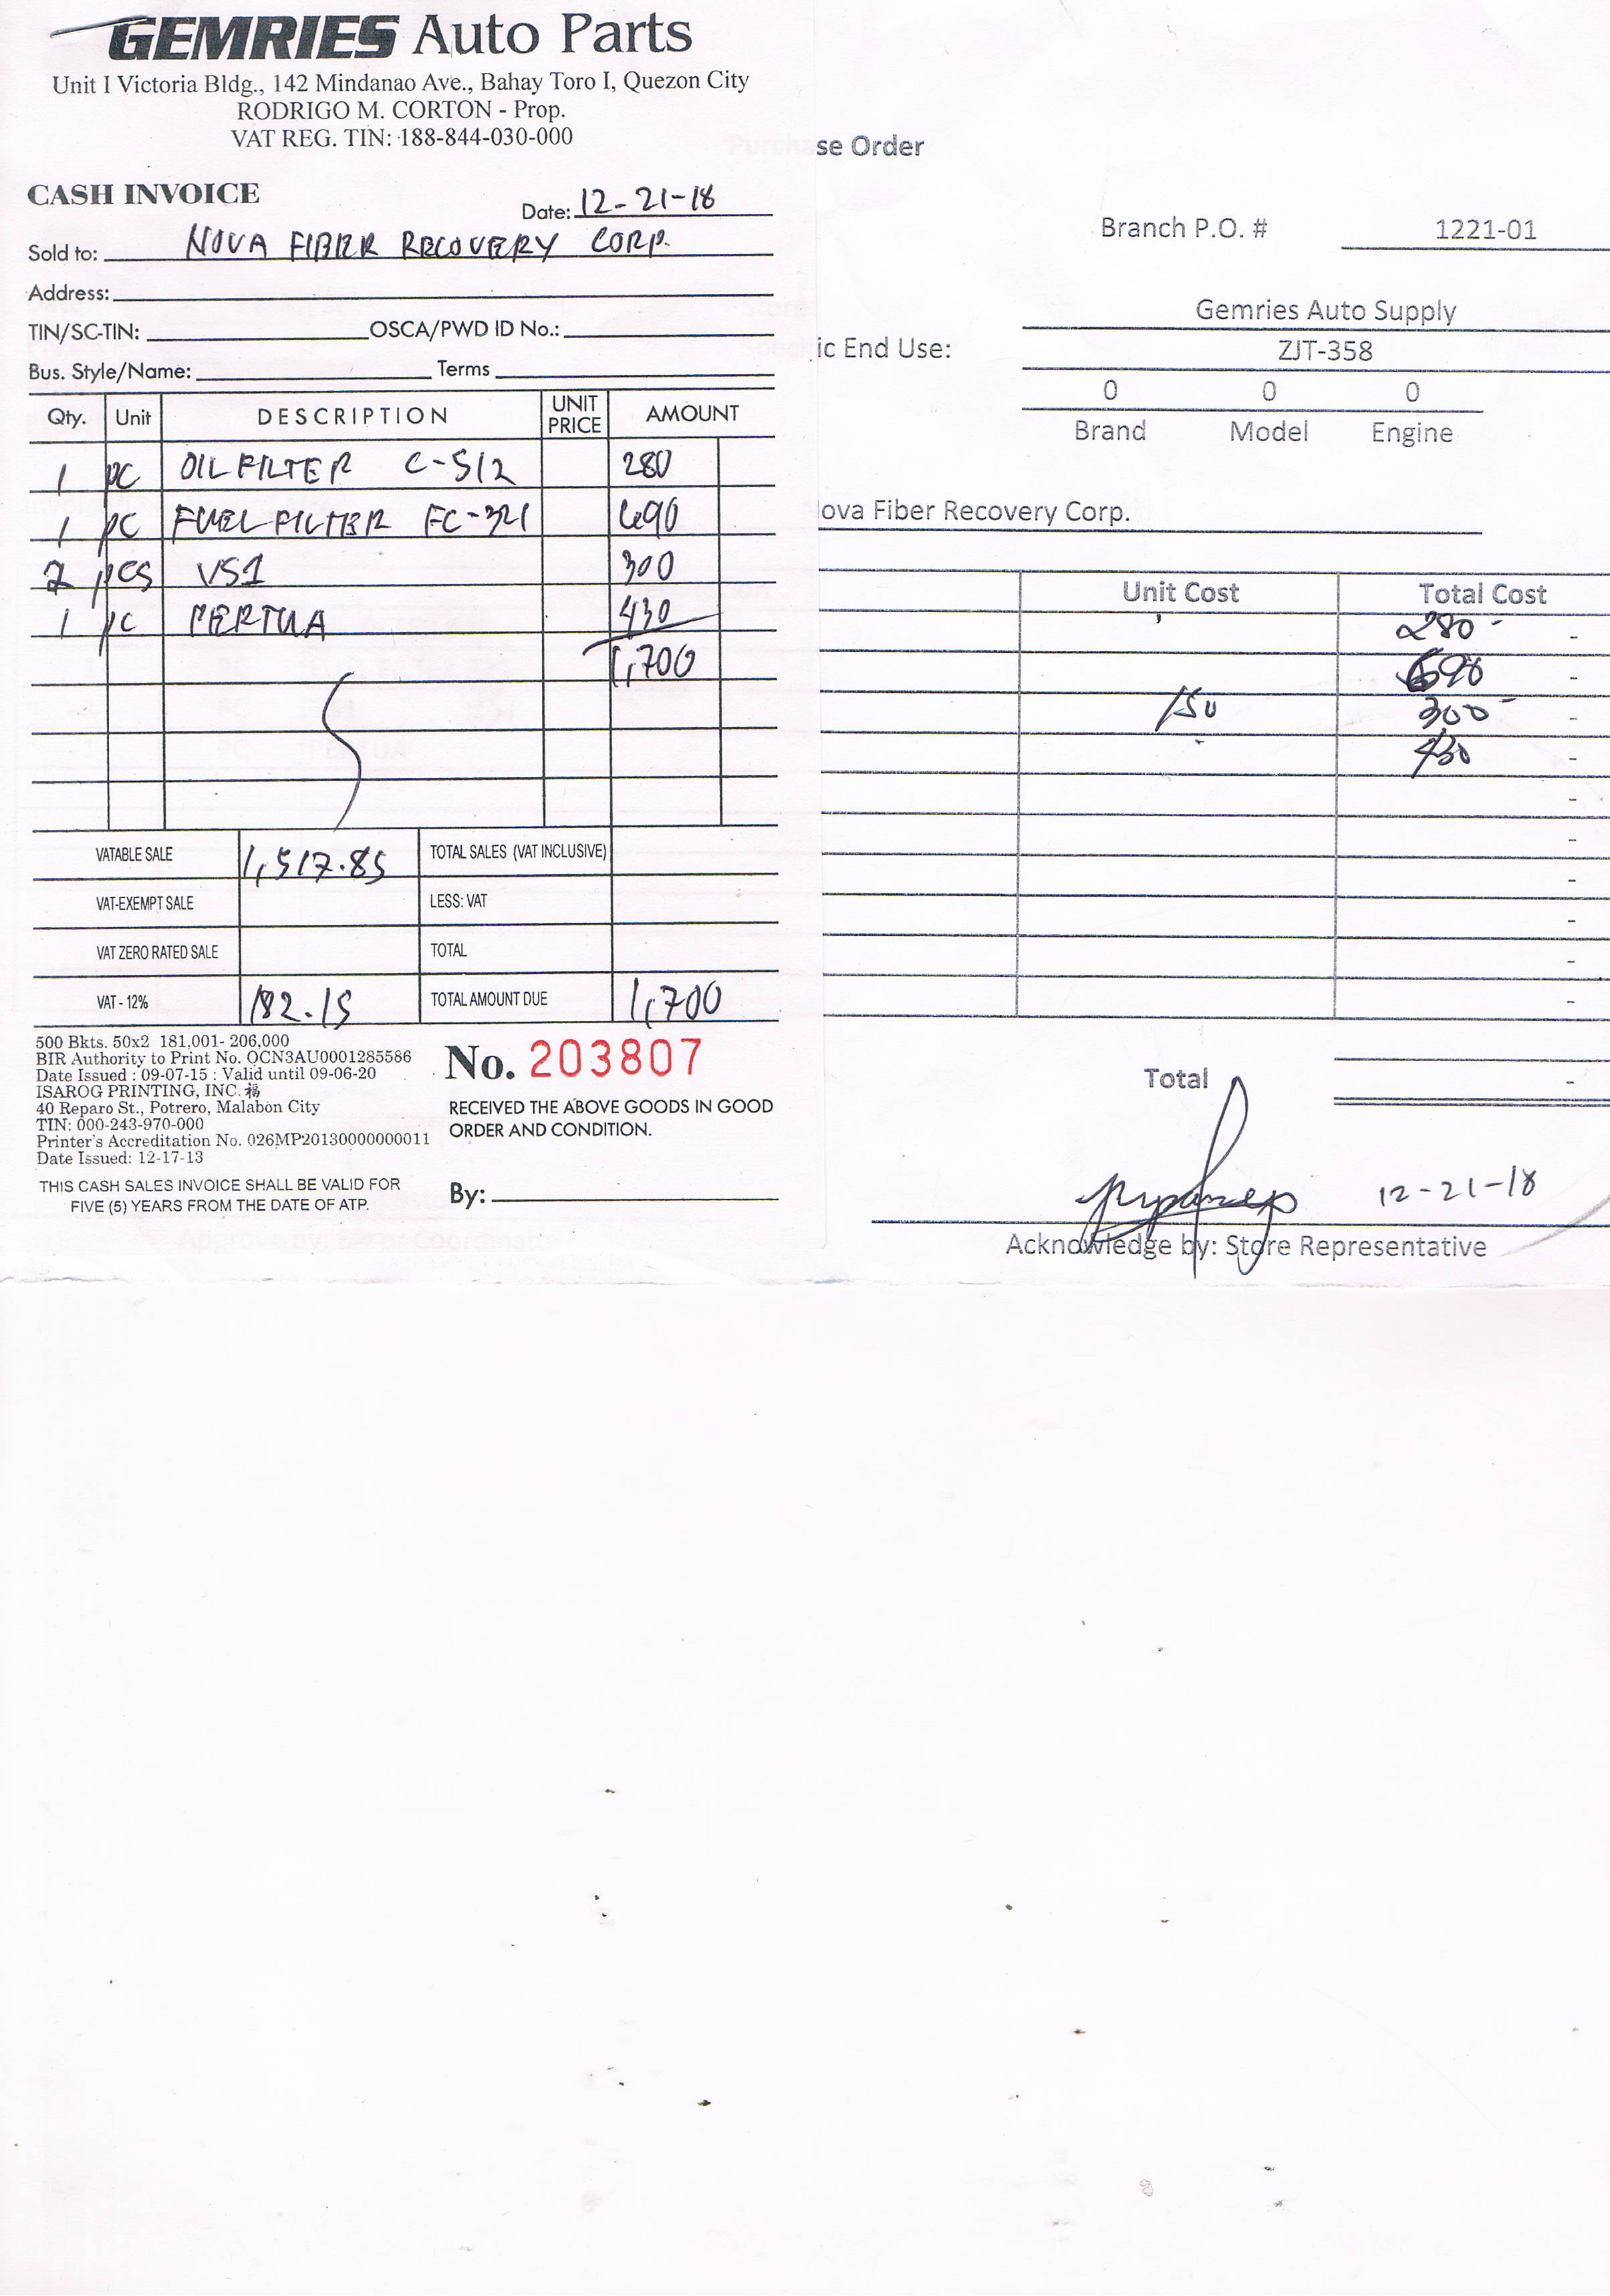 GEMRIES Auto Parts
Unit I Victoria Bldg., 142 Mindanao Ave., Bahay Toro I, Quezon City
RODRIGO M. CORTON - Prop.
VAT REG. TIN: 188-844-030-000
CASH INVOICE
Date: 12-21-18
Sold to: NOVA FIBER RECOVERY CORP.
Address:
TIN/SC-TIN: OSCA/PWD ID No.:
Bus. Style/Name: Terms
Qty. Unit DESCRIPTION UNIT PRICE AMOUNT
1 pc OIL FILTER C-512 280
1 pc FUEL FILTER FC-321 690
2 pcs VS1 300
1 pc PERTUA 430
1,700
VATABLE SALE 1,517.85 TOTAL SALES (VAT INCLUSIVE)
VAT-EXEMPT SALE LESS: VAT
VAT ZERO RATED SALE TOTAL
VAT - 12% 182.15 TOTAL AMOUNT DUE 1,700
500 Bkts. 50x2 181,001- 206,000
BIR Authority to Print No. OCN3AU0001285586
Date Issued : 09-07-15 : Valid until 09-06-20
ISAROG PRINTING, INC. 福
40 Reparo St., Potrero, Malabon City
TIN: 000-243-970-000
Printer's Accreditation No. 026MP20130000000011
Date Issued: 12-17-13
THIS CASH SALES INVOICE SHALL BE VALID FOR
FIVE (5) YEARS FROM THE DATE OF ATP.
No. 203807
RECEIVED THE ABOVE GOODS IN GOOD
ORDER AND CONDITION.
By:
se Order
Branch P.O. # 1221-01
Gemries Auto Supply
ic End Use: ZJT-358
0 0 0
Brand Model Engine
ova Fiber Recovery Corp.
Unit Cost Total Cost
280 -
690 -
150 300 -
430 -
-
-
-
-
-
-
Total -
12-21-18
Acknowledge by: Store Representative